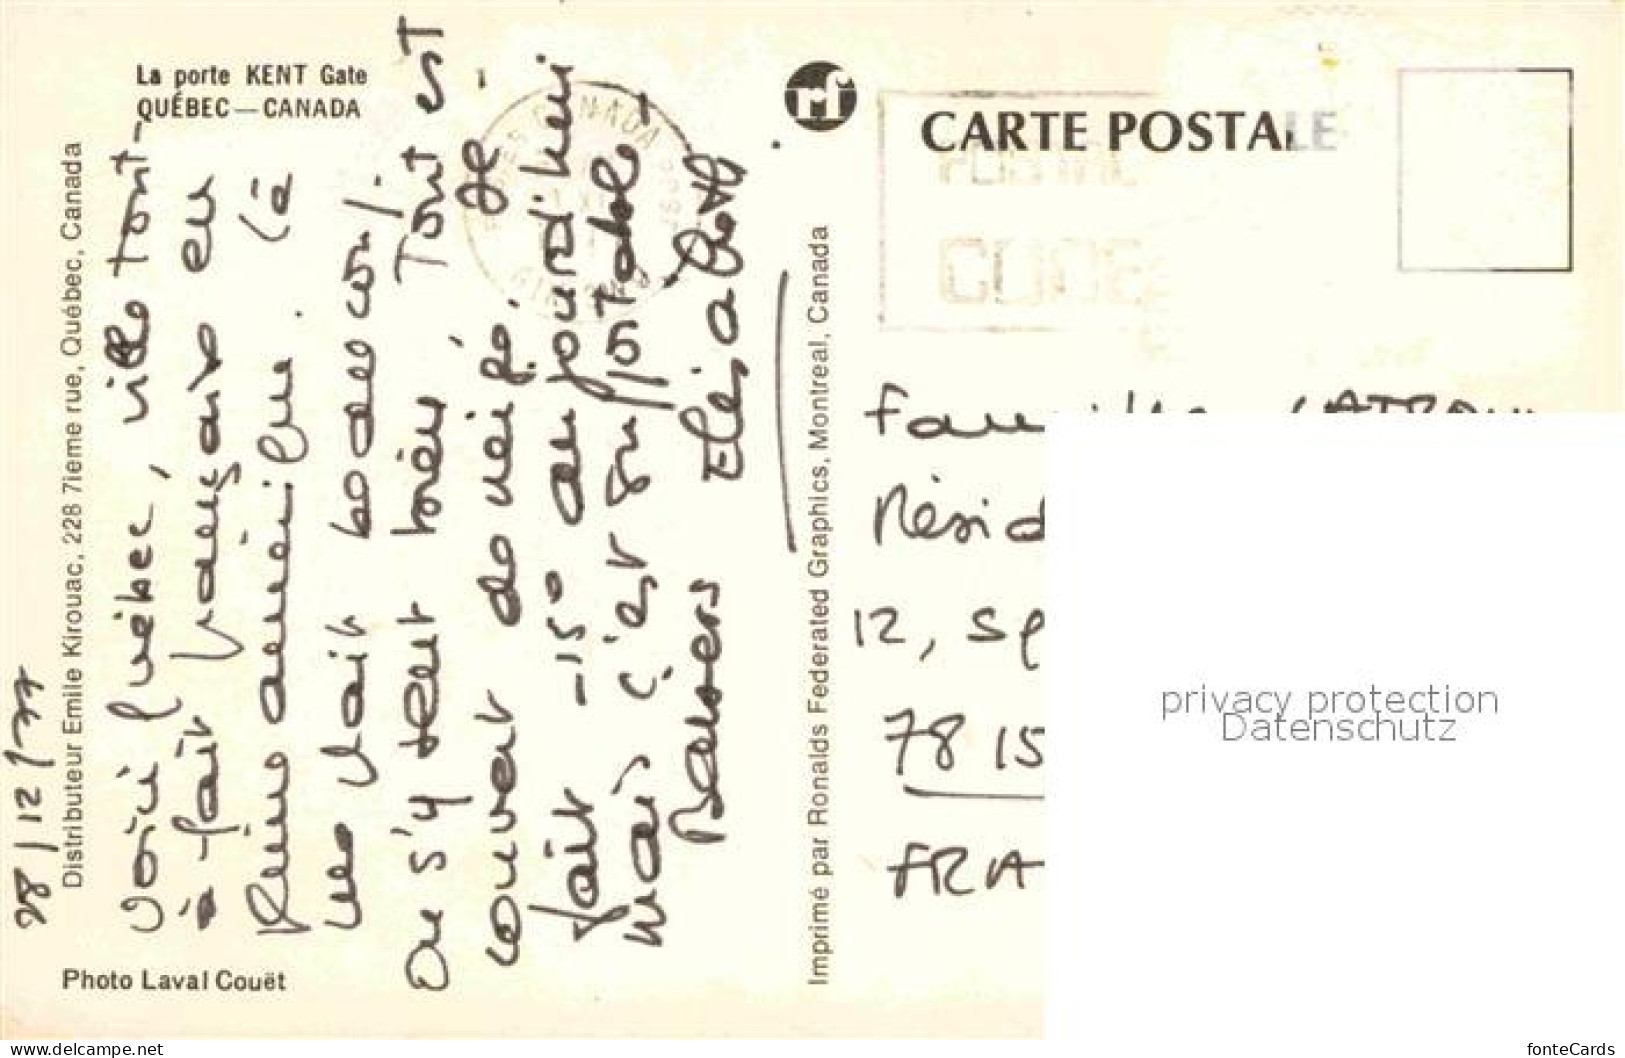 La porte KENT Gate
QUÉBEC — CANADA
Distributeur Emile Kirouac, 228 7ieme rue, Québec, Canada
Photo Laval Couët
28/12/77
Voici Québec, ville tout-
à-fait française en
plein amérique. Là
il y fait beaucoup!
On s'y tient bien, tout est
couvert de neige. Il
fait -15° aujourd'hui
mais c'est supportable -
Baisers Elisabeth
Imprimé par Ronalds Federated Graphics, Montreal, Canada
CARTE POSTALE
CANADA
POSTAL
CODE
Famille
Résid
12, sq
78 15
FRA
privacy protection
Datenschutz
delcampe.net
fonteCards